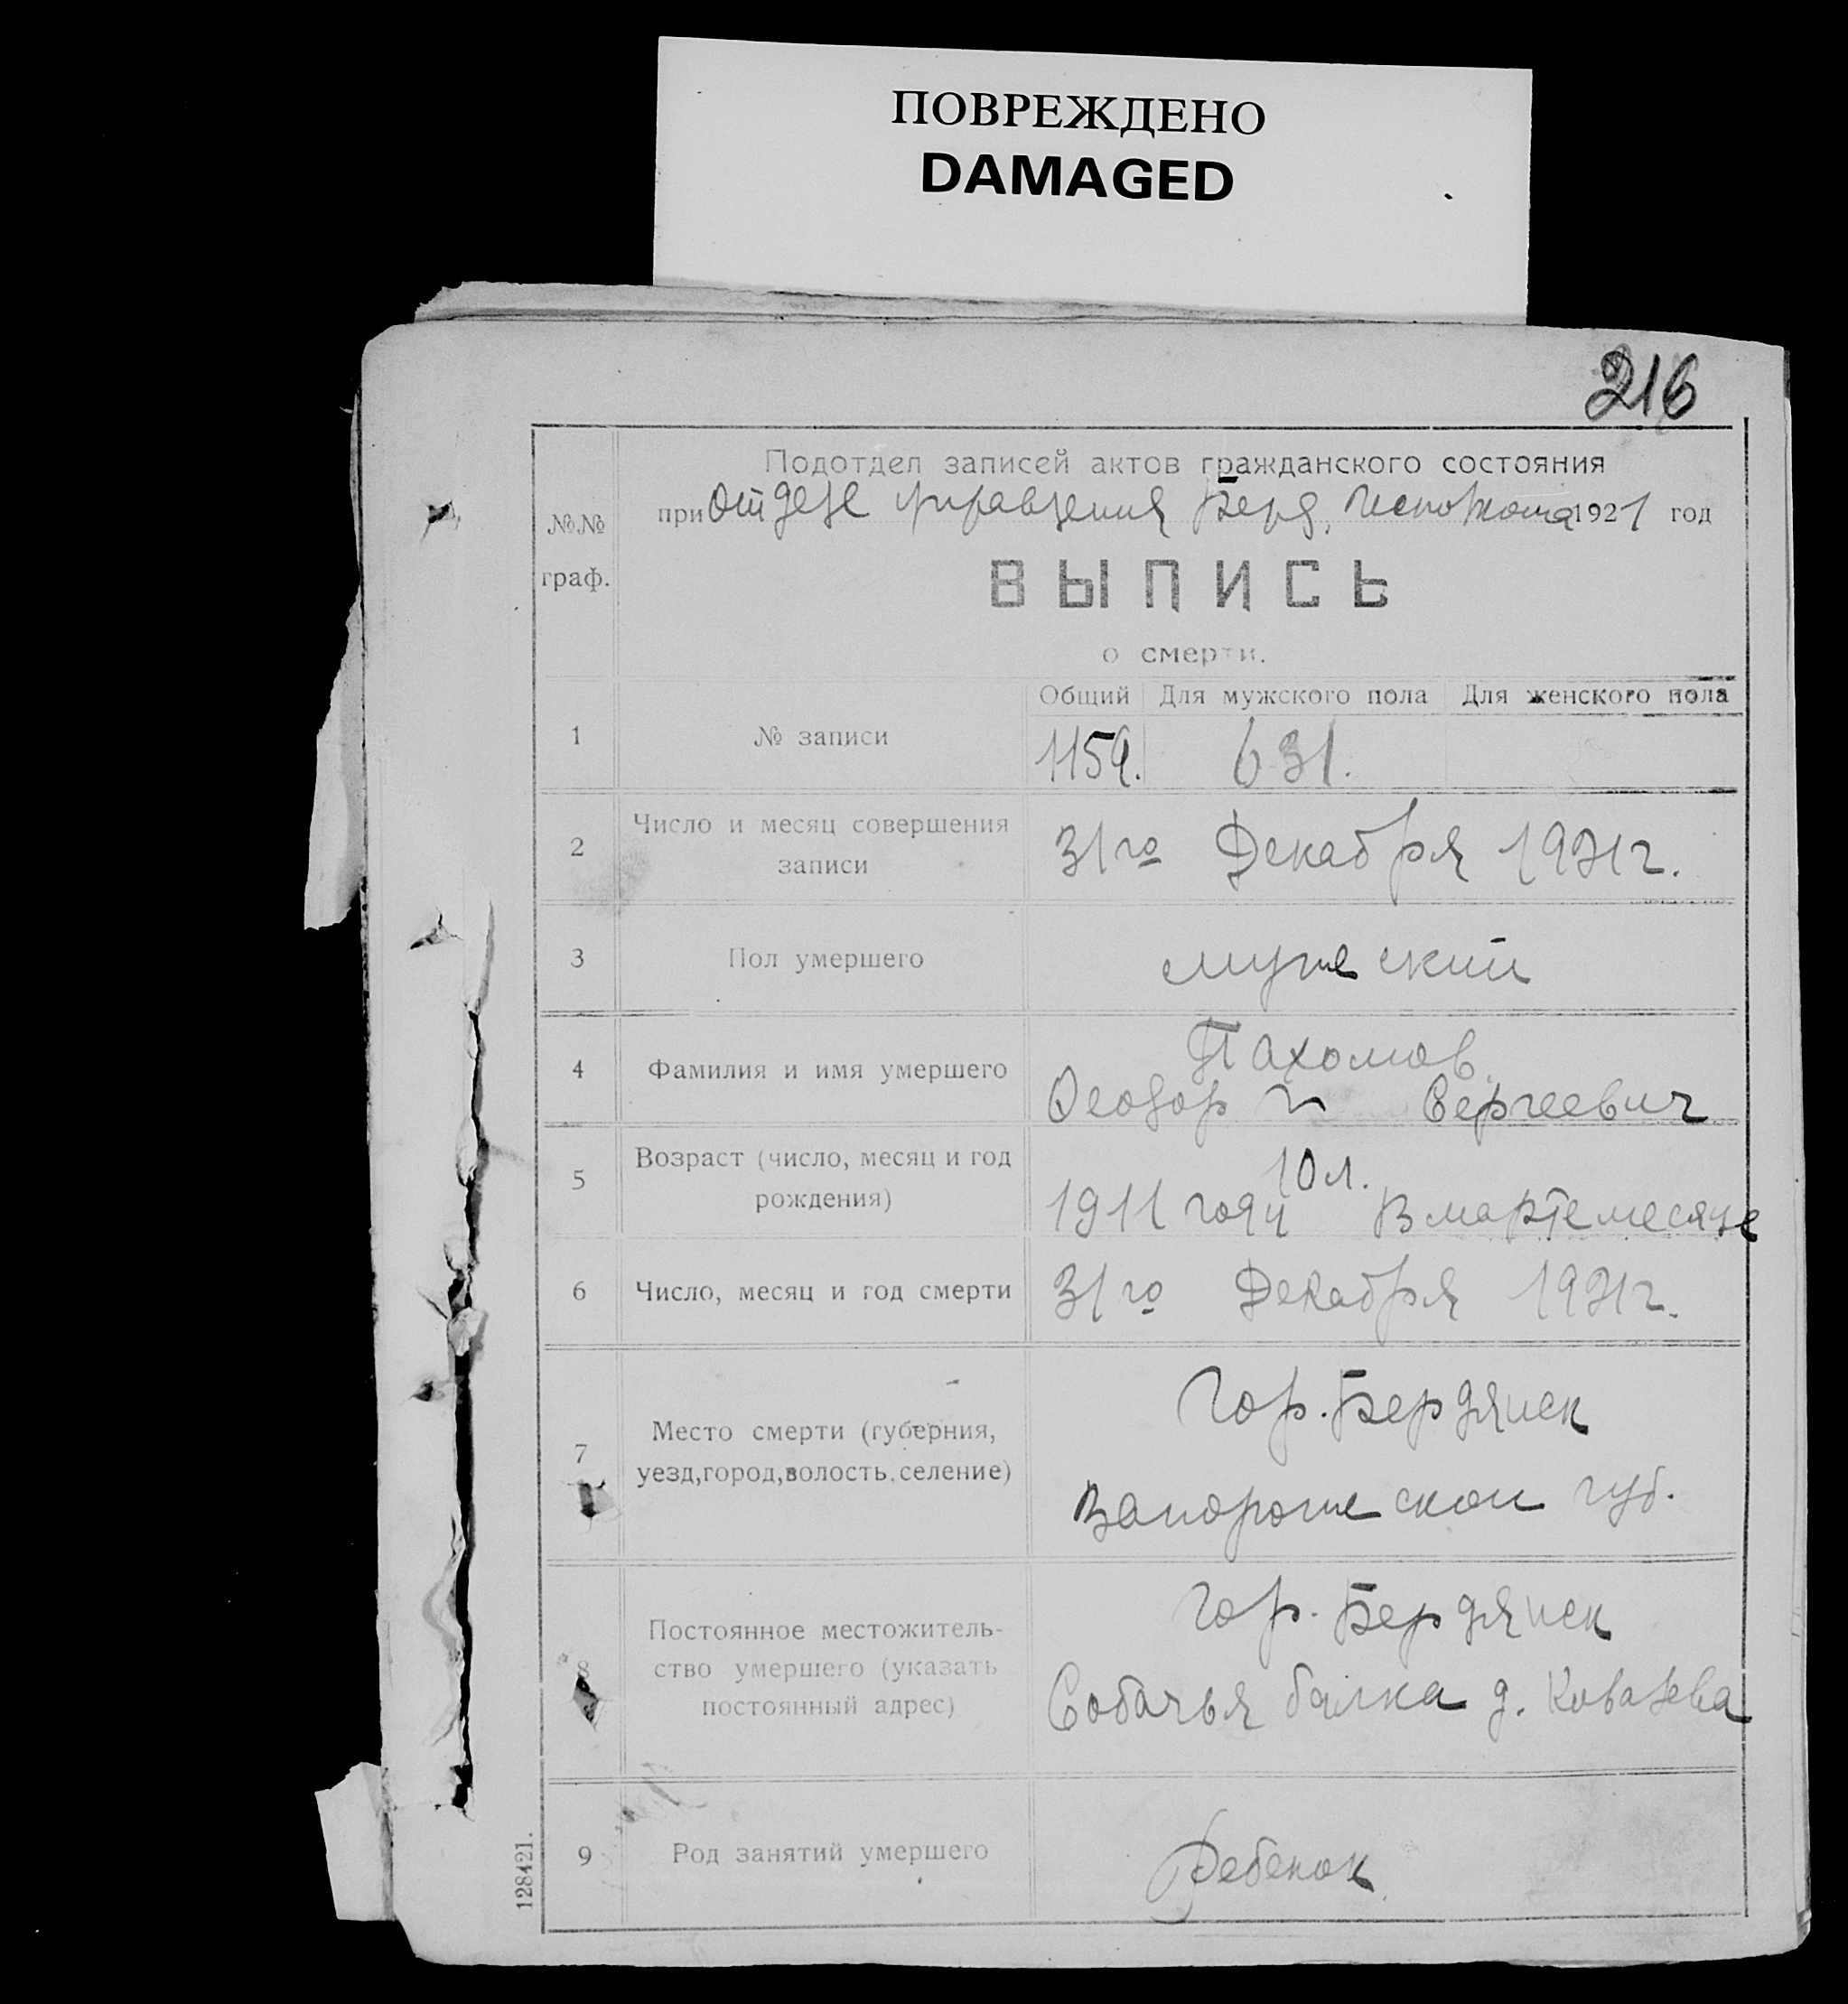 ПОВРЕЖДЕНО
DAMAGED
216
Подотдел записей актов гражданского состояния
№№ граф.
при Отделе Управления Берд. Исполкома 1921 год
ВЫПИСЬ
о смерти.
Общий Для мужского пола Для женского пола
1 № записи 1159. 631.
2 Число и месяц совершения
записи
31го Декабря 1921г.
3 Пол умершего мужеский
Пахомов
4 Фамилия и имя умершего
Феодор Сергеевич
5 Возраст (число, месяц и год
рождения)
10 л.
1911 году в марте месяце
6 Число, месяц и год смерти 31го Декабря 1921г.
7 Место смерти (губерния,
уезд,город,волость,селение)
Гор. Бердянск
Запорожеской губ.
8 Постоянное местожитель-
ство умершего (указать
постоянный адрес)
Гор. Бердянск
Собачья балка д. Ковалева
9 Род занятий умершего Ребенок
128421.